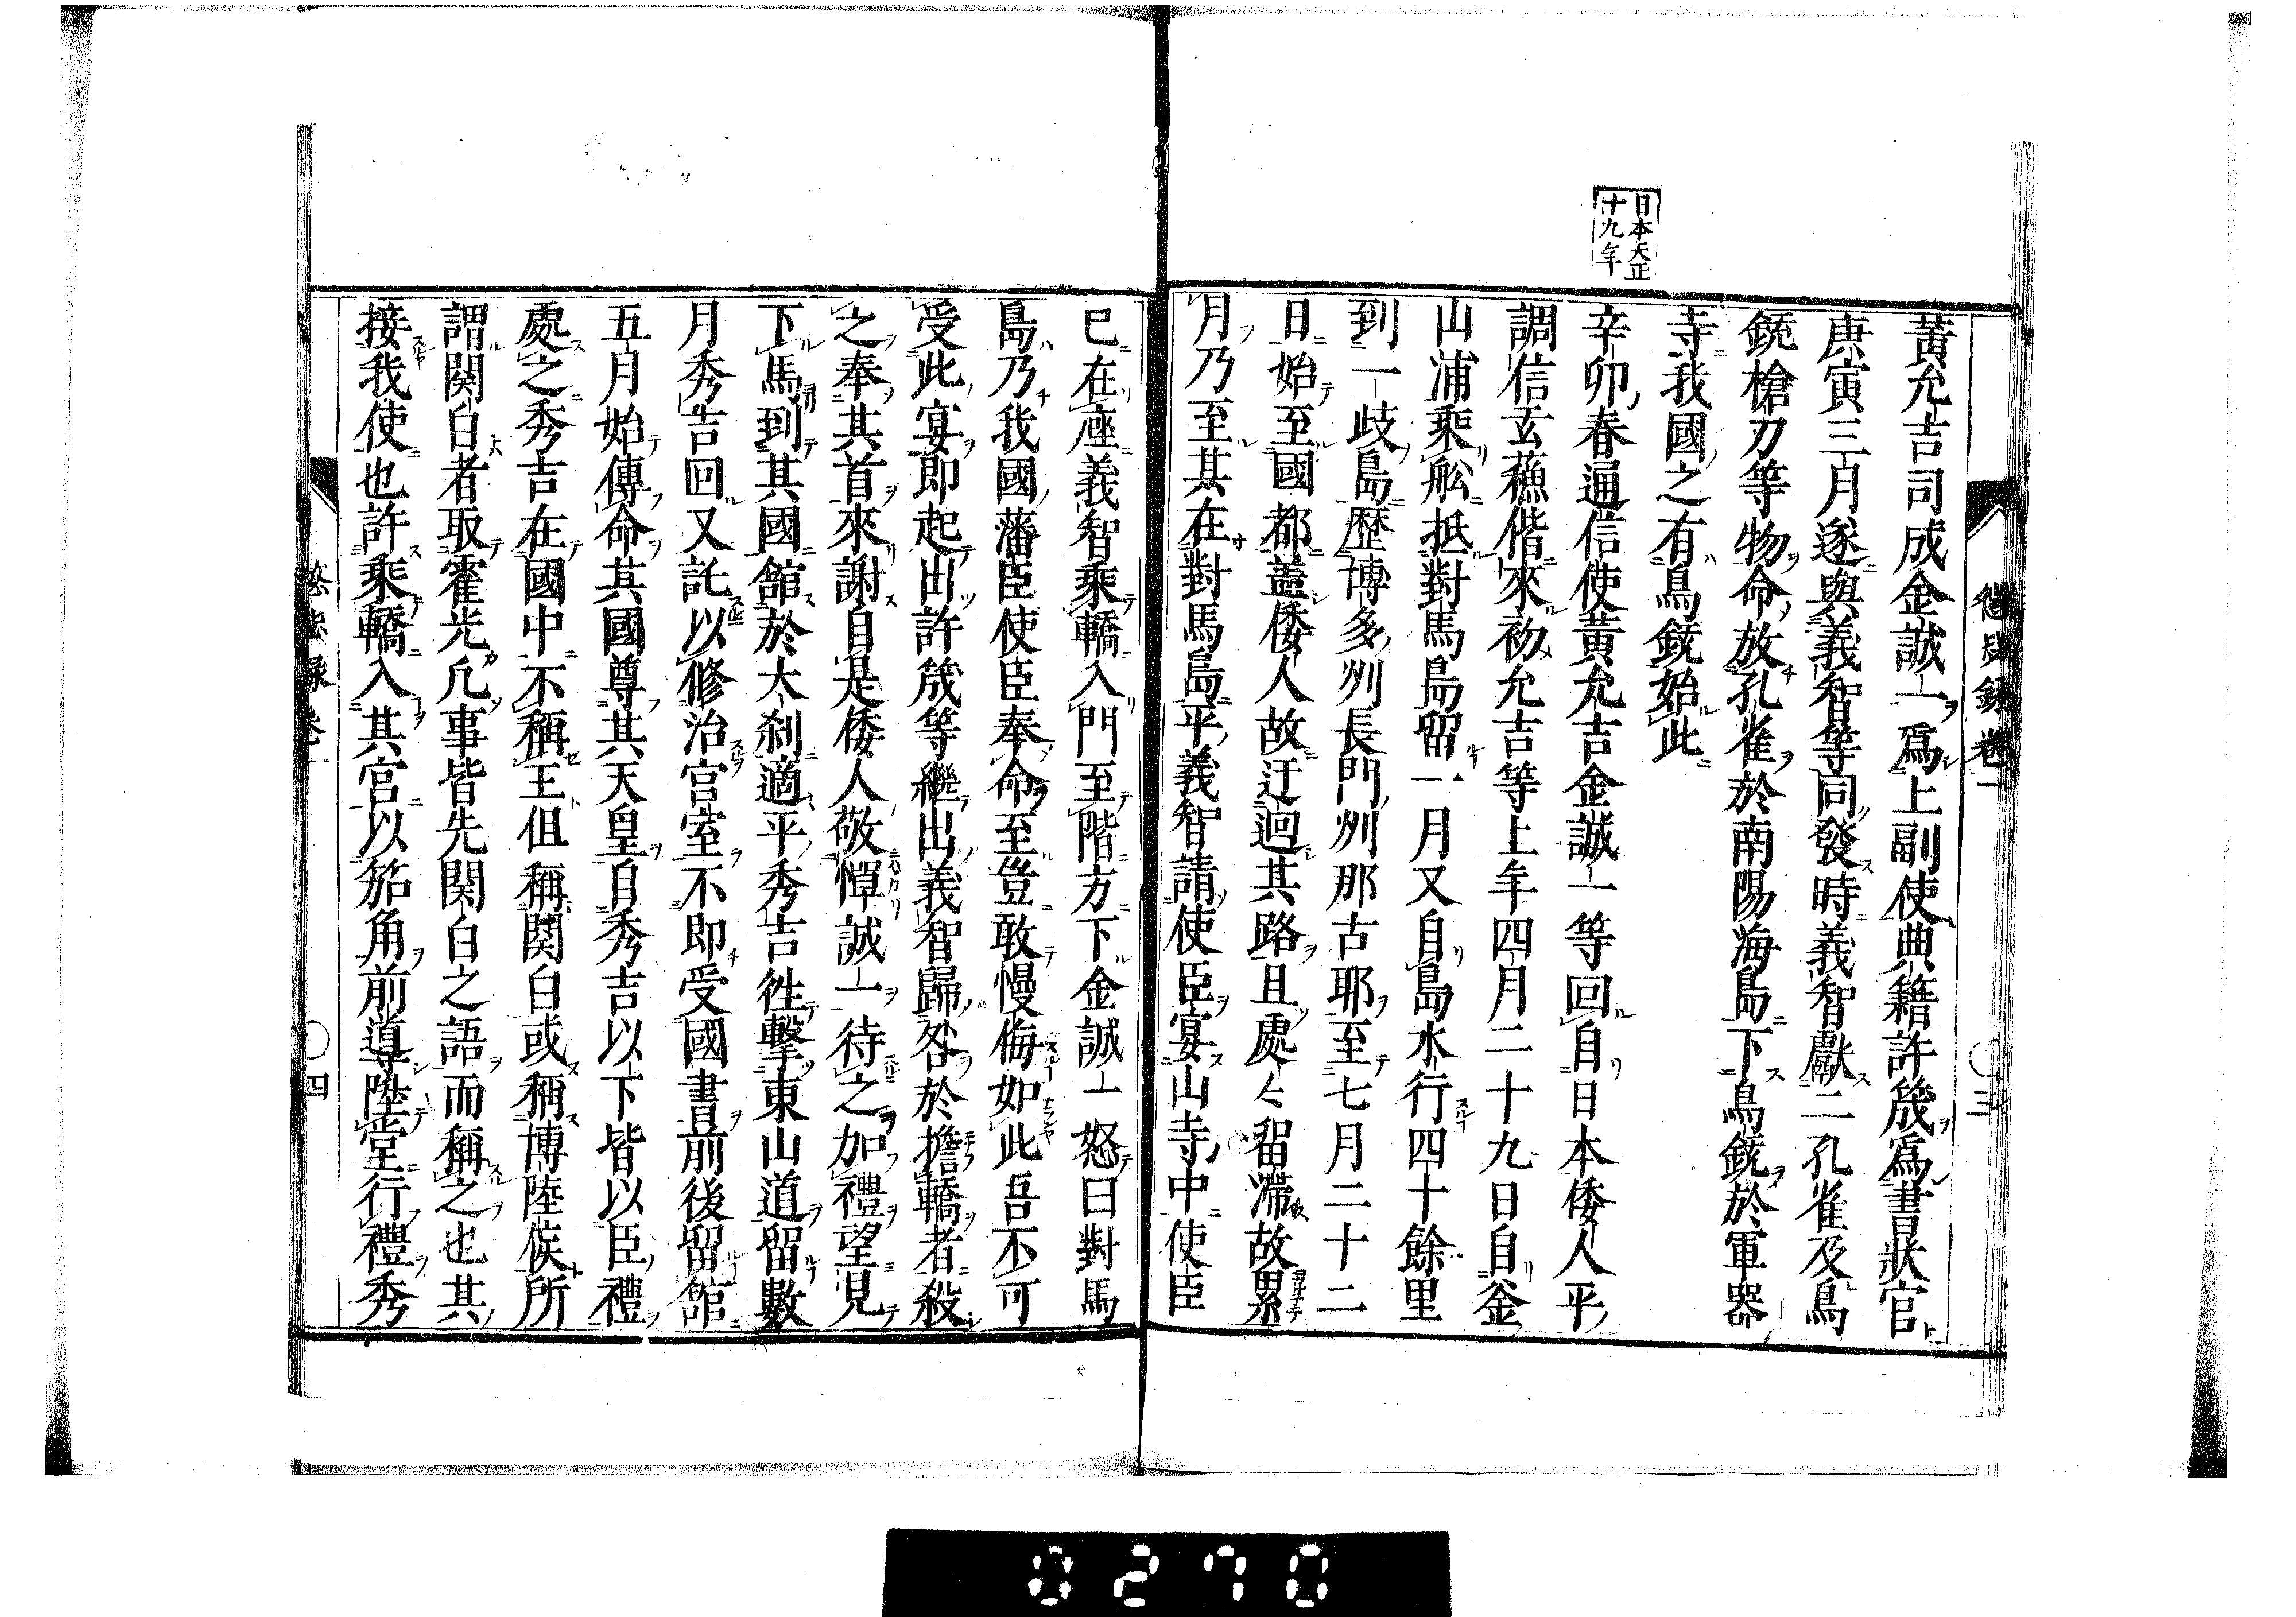 懲毖録卷一
三
黃允吉司成金誠一爲上副使典籍許筬爲書狀官
庚寅三月遂與義智等同發時義智獻二孔雀及鳥
銃槍刀等物命放孔雀於南陽海島下鳥銃於軍器
寺我國之有鳥銃始此
日本天正
十九年
辛卯春通信使黃允吉金誠一等回自日本倭人平
調信玄蘓偕來初允吉等上年四月二十九日自釜
山浦乘舩抵對馬島留一月又自島水行四十餘里
到一歧島歷博多州長門州那古耶至七月二十二
日始至國都蓋倭人故迂迴其路且處々留滯故累
月乃至其在對馬島平義智請使臣宴山寺中使臣
已在座義智乘轎入門至階方下金誠一怒曰對馬
島乃我國藩臣使臣奉命至豈敢慢侮如此吾不可
受此宴即起出許筬等繼出義智歸咎於擔轎者殺
之奉其首來謝自是倭人敬憚誠一待之加禮望見
下馬到其國館於大刹適平秀吉徃擊東山道留數
月秀吉回又託以修治宮室不即受國書前後留館
五月始傳命其國尊其天皇自秀吉以下皆以臣禮
處之秀吉在國中不稱王但稱関白或稱博陸侯所
謂関白者取霍光凢事皆先関白之語而稱之也其
接我使也許乘轎入其宮以笳角前導陞堂行禮秀
懲毖録卷一
四
0270